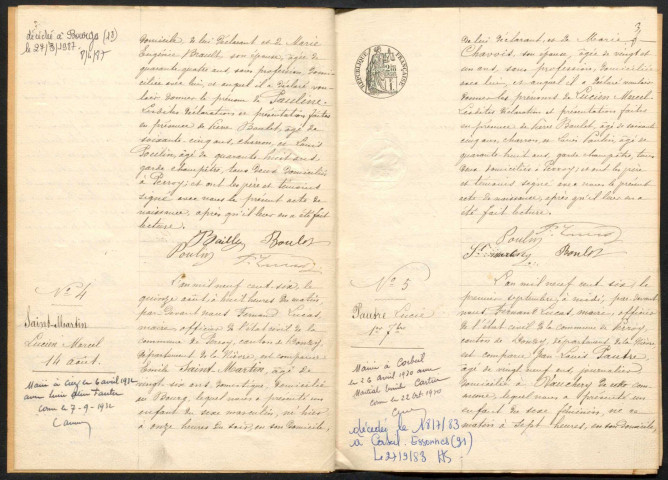 décédé à Bourges (18)
domicile de lui déclarant et de Marie
Eugénie Brault son épouse, âgée de
quarante quatre ans sans profession domi-
ciliée avec lui, et auquel il a déclaré vou-
loir donner le prénom de
Lesdites déclaration et présentation faites
en présence de Pierre Boulot, âgé de
soixante cinq ans, charron, et Louis
Poulin, âgé de quarante huit ans
garde champêtre, tous deux domiciliés
à Perroy; et ont les père et témoins
signé avec nous le présent acte de
naissance, après qu'il leur en a été fait
lecture.
Bailly Boulot
Poulin
N° 4
Saint-Martin
Lucien Marcel
14 août.
Marié à le 6 avril 1932
avec
le 7-9-1932
L'an mil neuf cent six le
quinze août à huit heures du matin,
par devant nous Fernand Lucas,
maire, officier de l'état civil de la
commune de Perroy, canton de Donzy,
département de la Nièvre, est comparu
Emile Saint-Martin, âgé de
vingt six ans domestique, domicilié
au Bourg, lequel nous a présenté un
enfant de sexe masculin, né hier
à onze heures du soir, en son domicile,
RÉPUBLIQUE FRANÇAISE
de lui déclarant, et de Marie
Chavois, son épouse, âgée de vingt et
un ans, sans profession, domiciliée
avec lui, et auquel il a déclaré vouloir
donner les prénoms de Lucien Marcel.
Lesdites déclaration et présentation faites
en présence de Pierre Boulot, âgé de soixante
cinq ans, charron, et Louis Poulin âgé de
quarante huit ans garde champêtre, tous
deux domiciliés à Perroy; et ont les père
et témoins signé avec nous le présent
acte de naissance, après qu'il leur en a
été fait lecture.
Poulin
St Martin Boulot
N° 5
Pautre Lucie
1er 7bre
Mariée à Corbeil
le 26 avril 1930 avec
Martial Emile Cartier
le 22 Oct 1930
décédée le
à Corbeil-Essonnes (91)
Le 27/9/83
L'an mil neuf cent six le
premier septembre, à midi, par devant
nous Fernand Lucas, maire, officier
de l'état civil de la commune de Perroy,
canton de Donzy, département de la Nièvre
est comparu Jean Louis Pautre,
âgé de vingt neuf ans journalier
domicilié à de cette com-
mune, lequel nous a présenté un
enfant de sexe féminin, né ce
matin à sept heures, en son domicile,